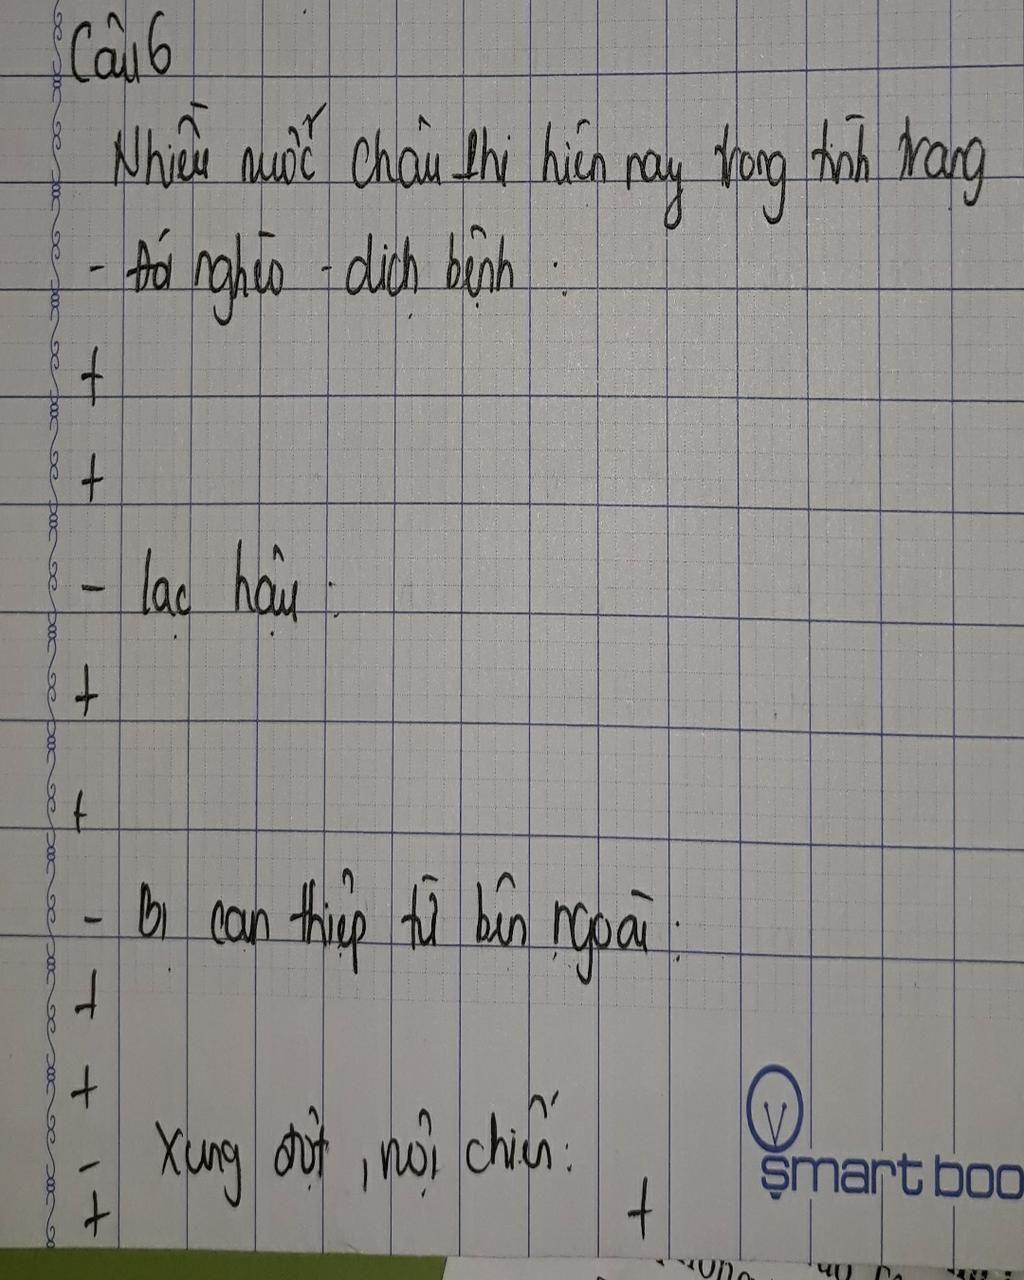 Câu 6
Nhiều nước châu Phi hiện nay trong tình trạng
- Đói nghèo - dịch bệnh :
+
+
- lạc hậu :
+
+
- Bị can thiệp từ bên ngoài :
+
+
- Xung đột, nội chiến :
+ +
smart boo